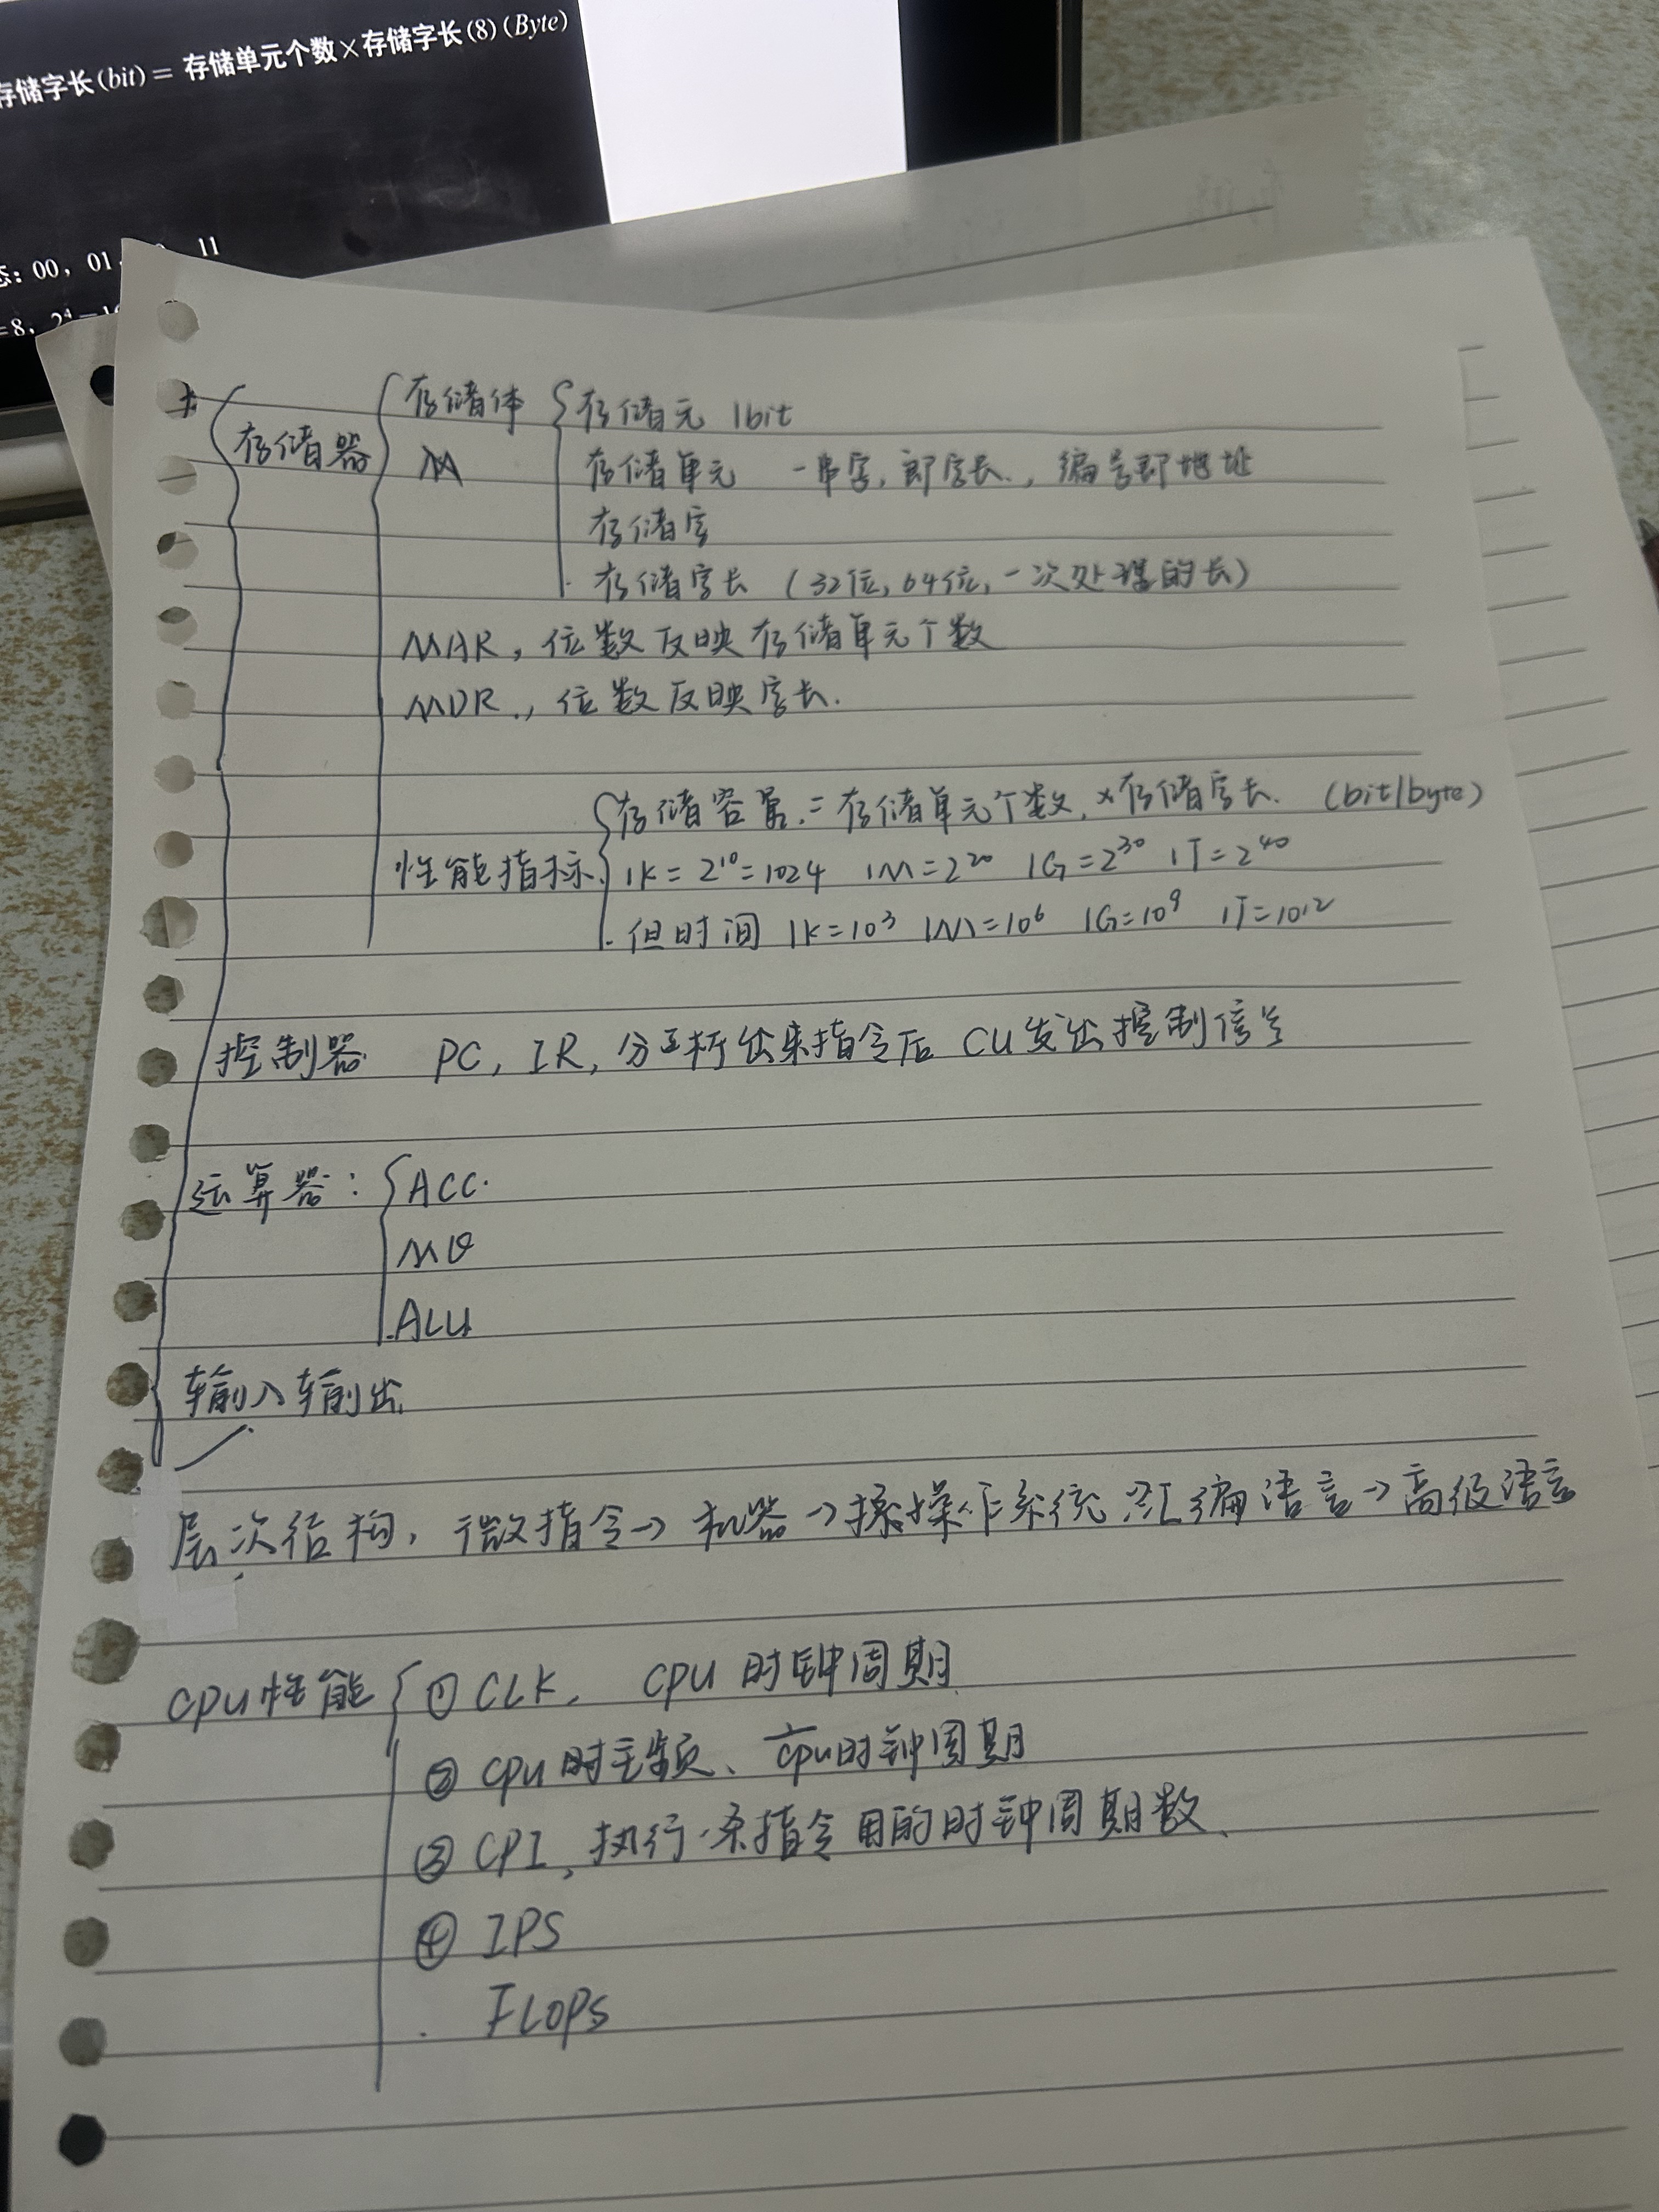 存储字长(bit)= 存储单元个数×存储字长(8)(Byte)
态: 00, 01, 11
=8, 2⁴=16
存储器
存储体
M
存储元 1bit
存储单元 一串字, 即字长., 编号即地址
存储字
存储字长 (32位, 64位, 一次处理的长)
MAR, 位数反映存储单元个数
MDR., 位数反映字长.
性能指标
存储容量.= 存储单元个数, ×存储字长. (bit/byte)
1K = 2¹⁰=1024 1M=2²⁰ 1G=2³⁰ 1T=2⁴⁰
但时间 1K=10³ 1M=10⁶ 1G=10⁹ 1T=10¹²
控制器 PC, IR, 分析出来指令后 CU发出控制信号
运算器:
ACC.
MQ
ALU
输入输出
层次结构, 微指令→ 机器→操作系统 汇编语言→高级语言
CPU性能
① CLK, CPU时钟周期
② CPU时主频、CPU时钟周期
③ CPI, 执行一条指令用的时钟周期数、
④ IPS
FLOPS